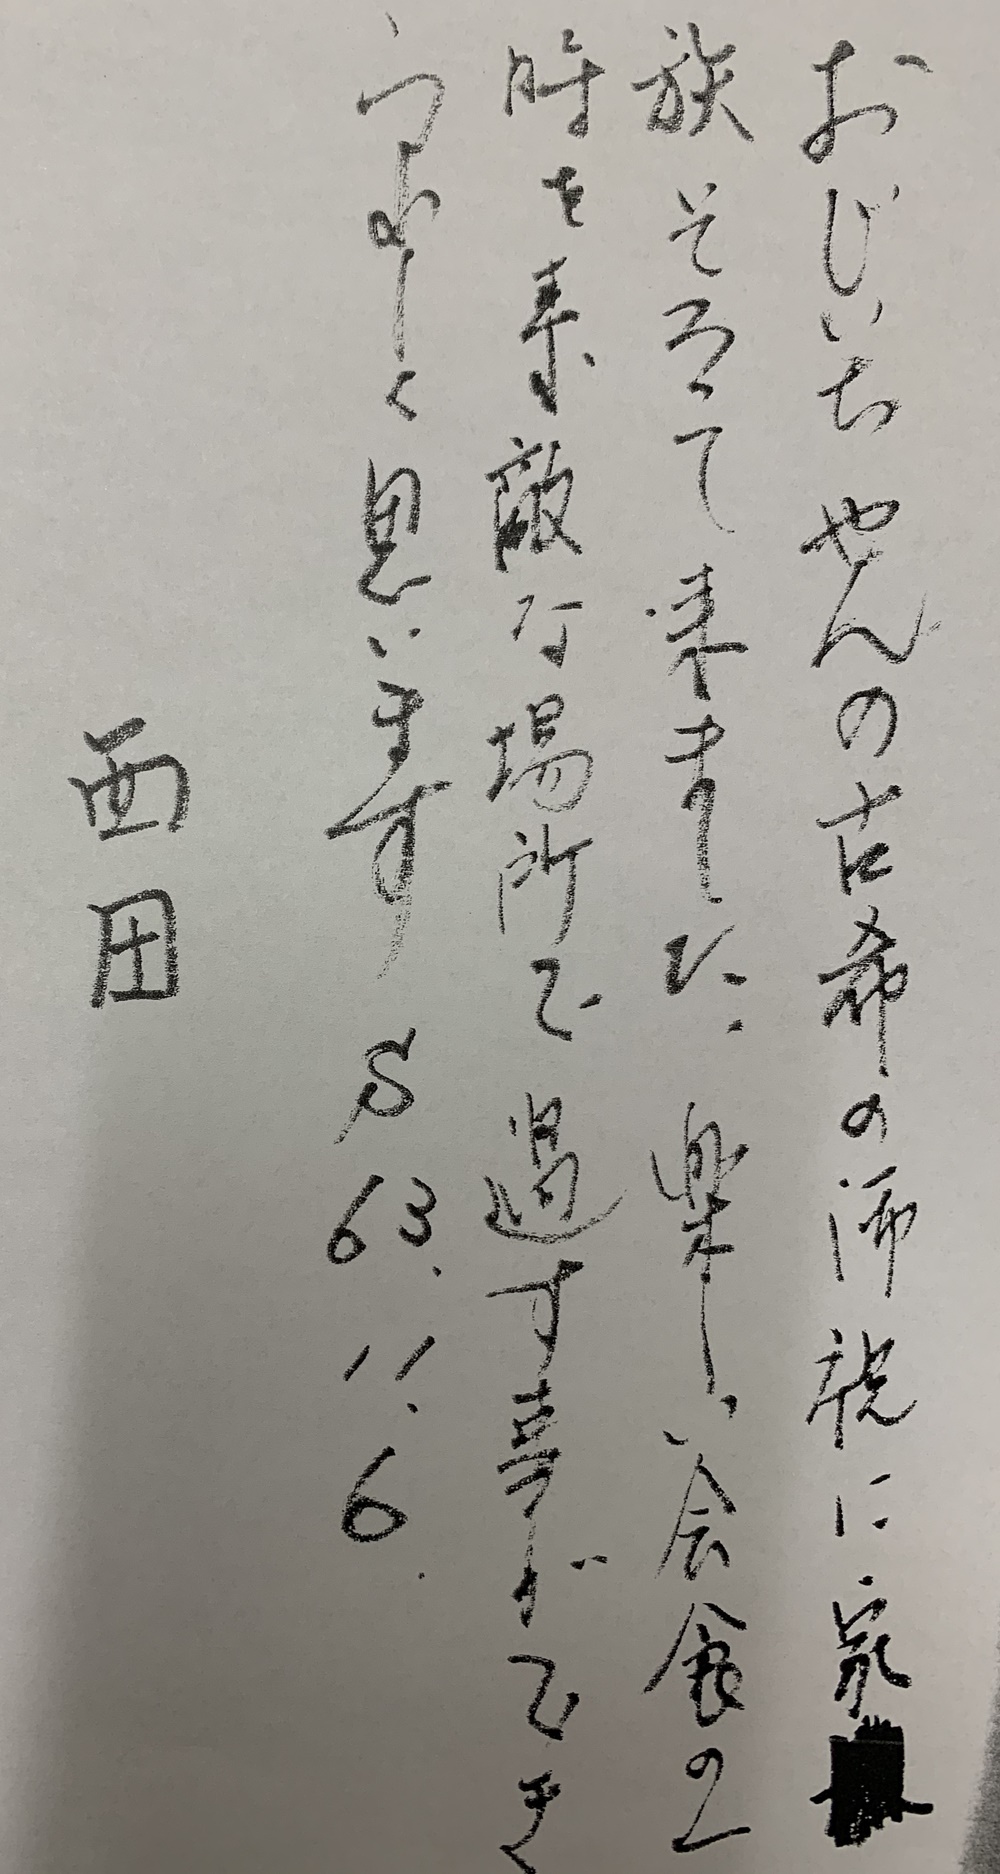 おじいちやんの古希の御祝に家
族そろって来ました。楽しい会食の
時を素敵な場所で過す事ができ
うれしく思います S63.11.6.
西田